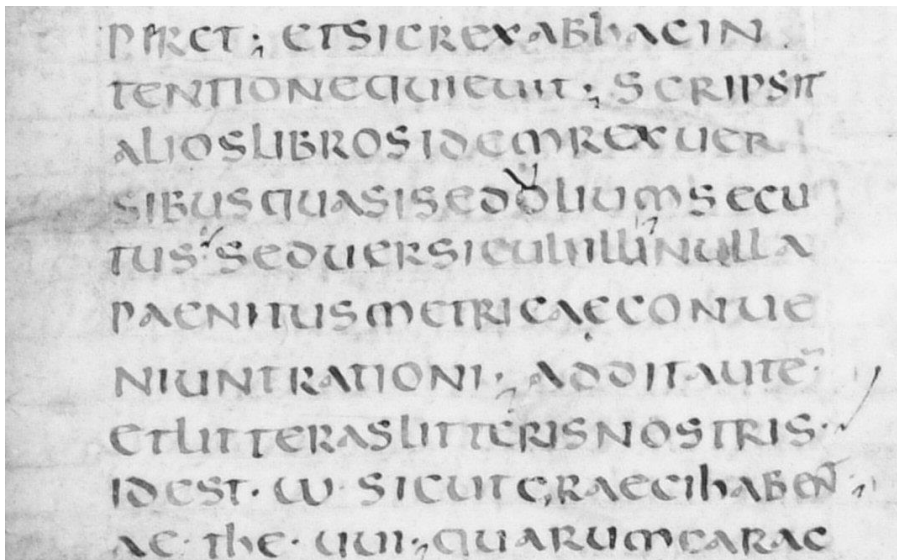 PPRET; ETSICREXABHACIN
TENTIONEQUIEUIT; SCRIPSIT
ALIOSLIBROSIDEMREXUER
SIBUSQUASISEDULIUMSECU
TUS· SEDUERSICULIILLINULLA
PAENITUSMETRICAECONUE
NIUNTRATIONI· ADDITAUTĒ·
ETLITTERASLITTERISNOSTRIS·
IDEST· W· SICUTGRAECIHABEN̄;
AE· the· uui· QUARUMCARAC